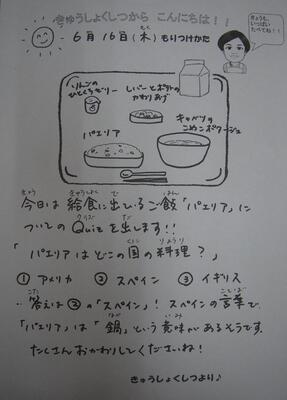 きゅうしょくしつから こんにちは!!
6月16日(木)もりつけかた
きょうも、
いっぱい
たべてね!!
りんごの
ひとくちゼリー
レバーとポテトの
かわりあげ
パエリア
キャベツの
こめこポタージュ
今日は給食に出ているご飯「パエリア」に
ついてのQuizを出します!!
「パエリアはどこの国の料理?」
①アメリカ ②スペイン ③イギリス
答えは②の「スペイン」!スペインの言葉で
「パエリア」は「鍋」という意味があるそうです。
たくさんおかわりしてくださいね!
きゅうしょくしつより♪